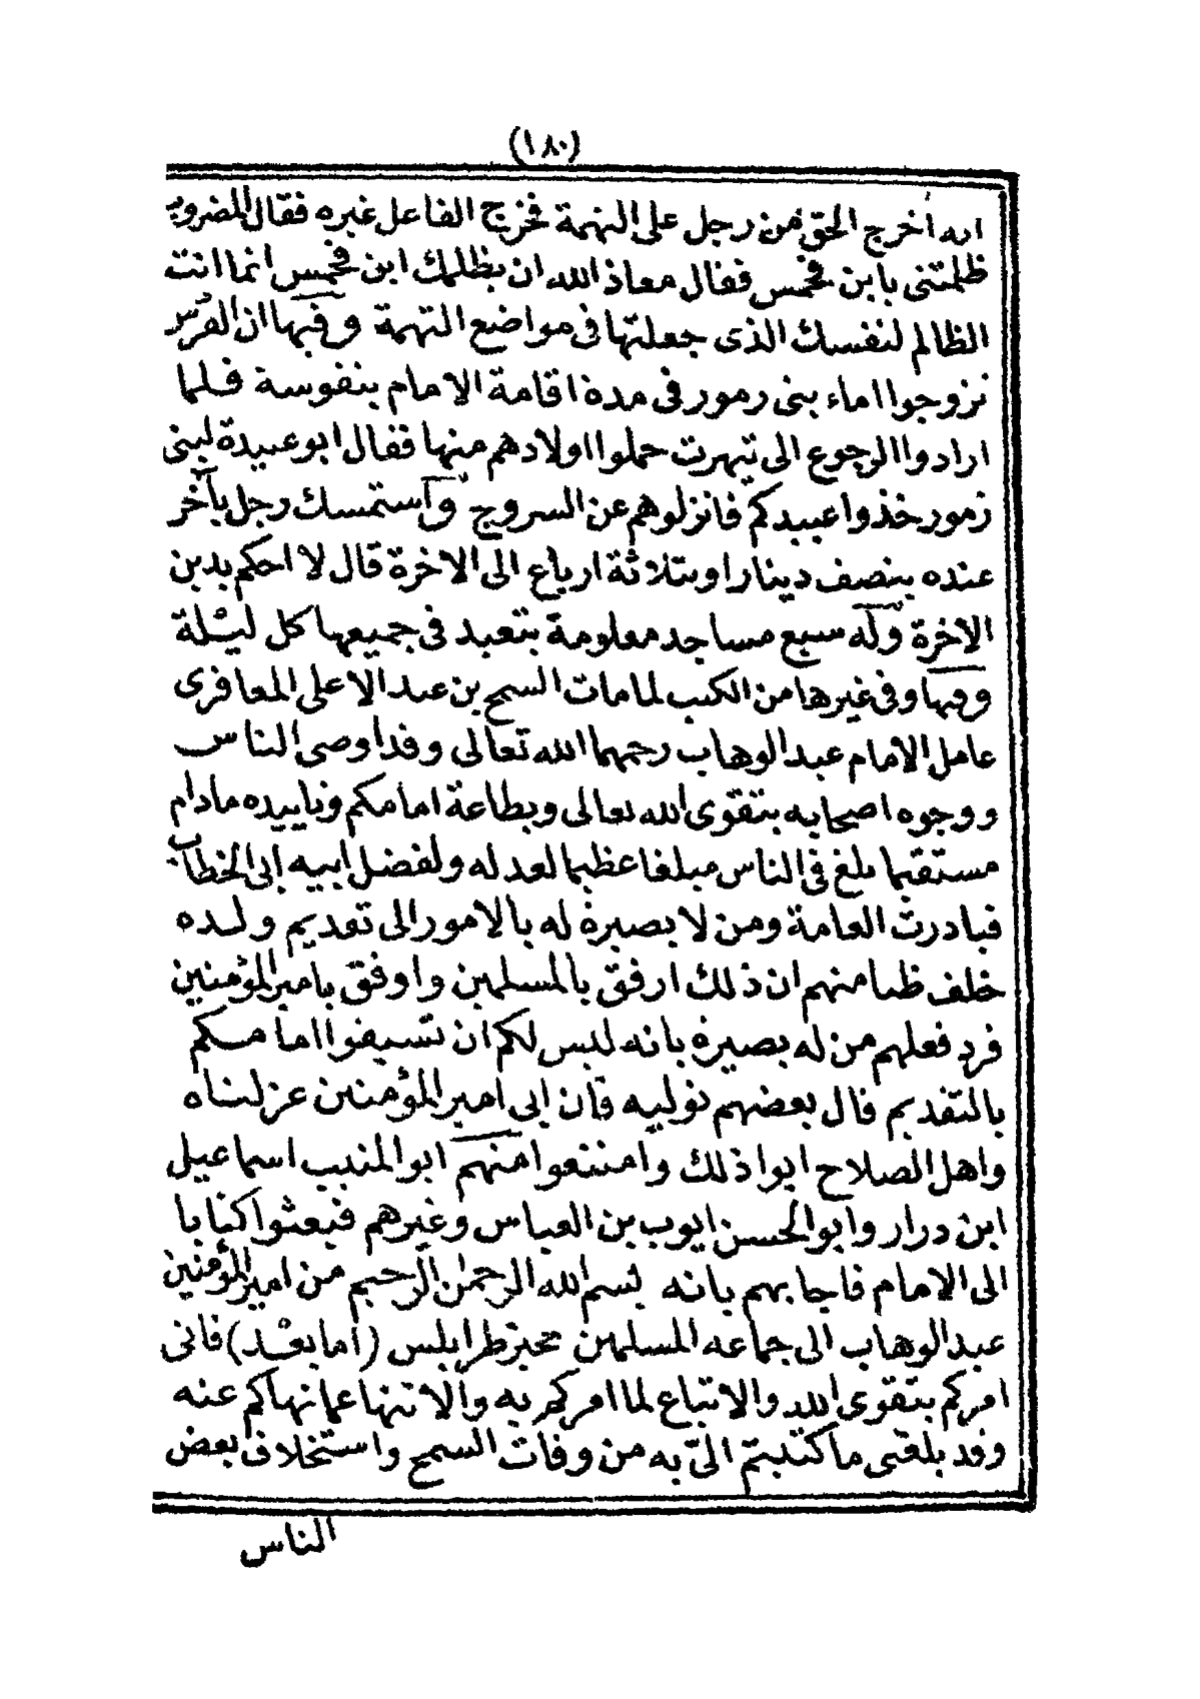 (١٨٠)
انه اخرج الحق من رجل على التهمة فخرج الفاعل غيره فقال المضروب
ظلمتنى يا ابن فحمس فقال معاذ الله ان يظلمك ابن فحمس انما انت
الظالم لنفسك الذى جعلتها فى مواضع التهمة وفيها ان الفرس
تزوجوا اماء بنى زمور فى مدة اقامة الامام بنفوسة فلما
ارادوا الرجوع الى تيهرت حملوا اولادهم منها فقال ابو عبيدة لبنى
زمور خذوا عبيدكم فانزلوهم عن السروج واستمسك رجل بآخر
عنده بنصف دينار او بثلاثة ارباع الى الاخرة قال لا احكم بدين
الاخرة وله سبع مساجد معلومة يتعبد فى جميعها كل ليلة
وفيها وفى غيرها من الكتب لما مات السمح بن عبد الاعلى المعافرى
عامل الامام عبد الوهاب رحمهما الله تعالى وقد اوصى الناس
ووجوه اصحابه بتقوى الله تعالى وبطاعة امامكم وتاييده مادام
مستقيما بلغ فى الناس مبلغا عظيما لعدله ولفضل ابيه ابى الخطاب
فبادرت العامة ومن لا بصيرة له بالامور الى تقديم ولده
خلف ظنا منهم ان ذلك ارفق بالمسلمين واوفق بامير المؤمنين
فرد فعلهم من له بصيرة بانه ليس لكم ان تسبقوا امامكم
بالتقديم قال بعضهم نوليه فان ابى امير المؤمنين عزلناه
واهل الصلاح ابوا ذلك وامتنعوا منهم ابو المنيب اسماعيل
ابن درار وابو الحسن ايوب بن العباس وغيرهم فبعثوا كتابا
الى الامام فاجابهم بانه بسم الله الرحمن الرحيم من امير المؤمنين
عبد الوهاب الى جماعه المسلمين بحيز طرابلس (اما بعد) فانى
امركم بتقوى الله والاتباع لما امركم به والانتها عما نهاكم عنه
وقد بلغنى ما كتبتم الىّ به من وفات السمح واستخلاف بعض
الناس